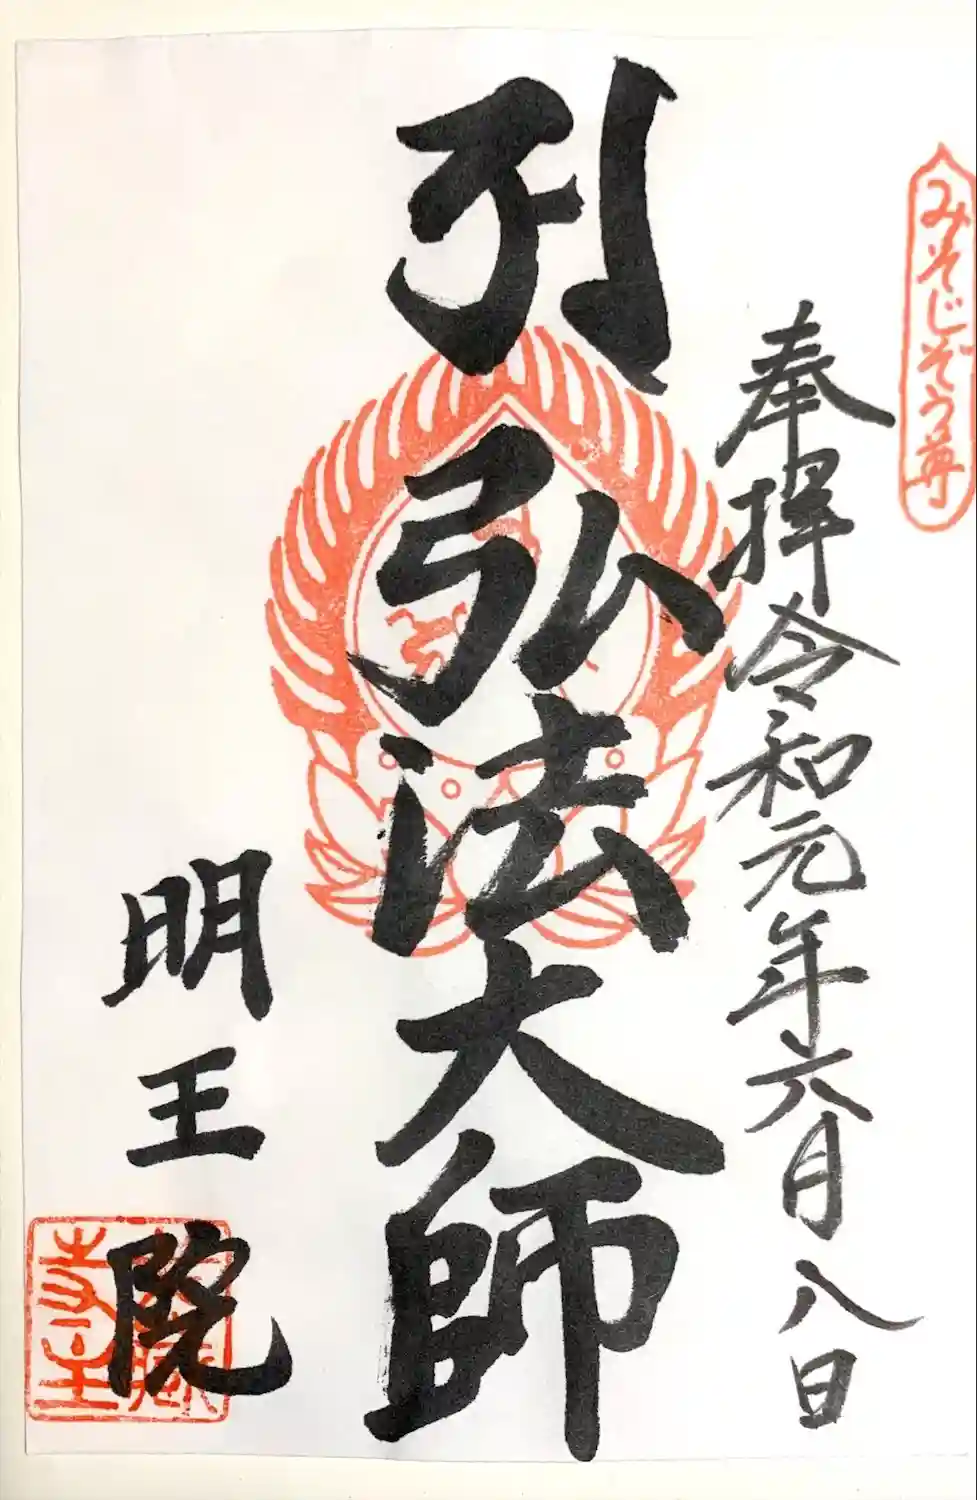 みそじぞう尊
奉拝 令和元年六月八日
引弘法大師
明王院